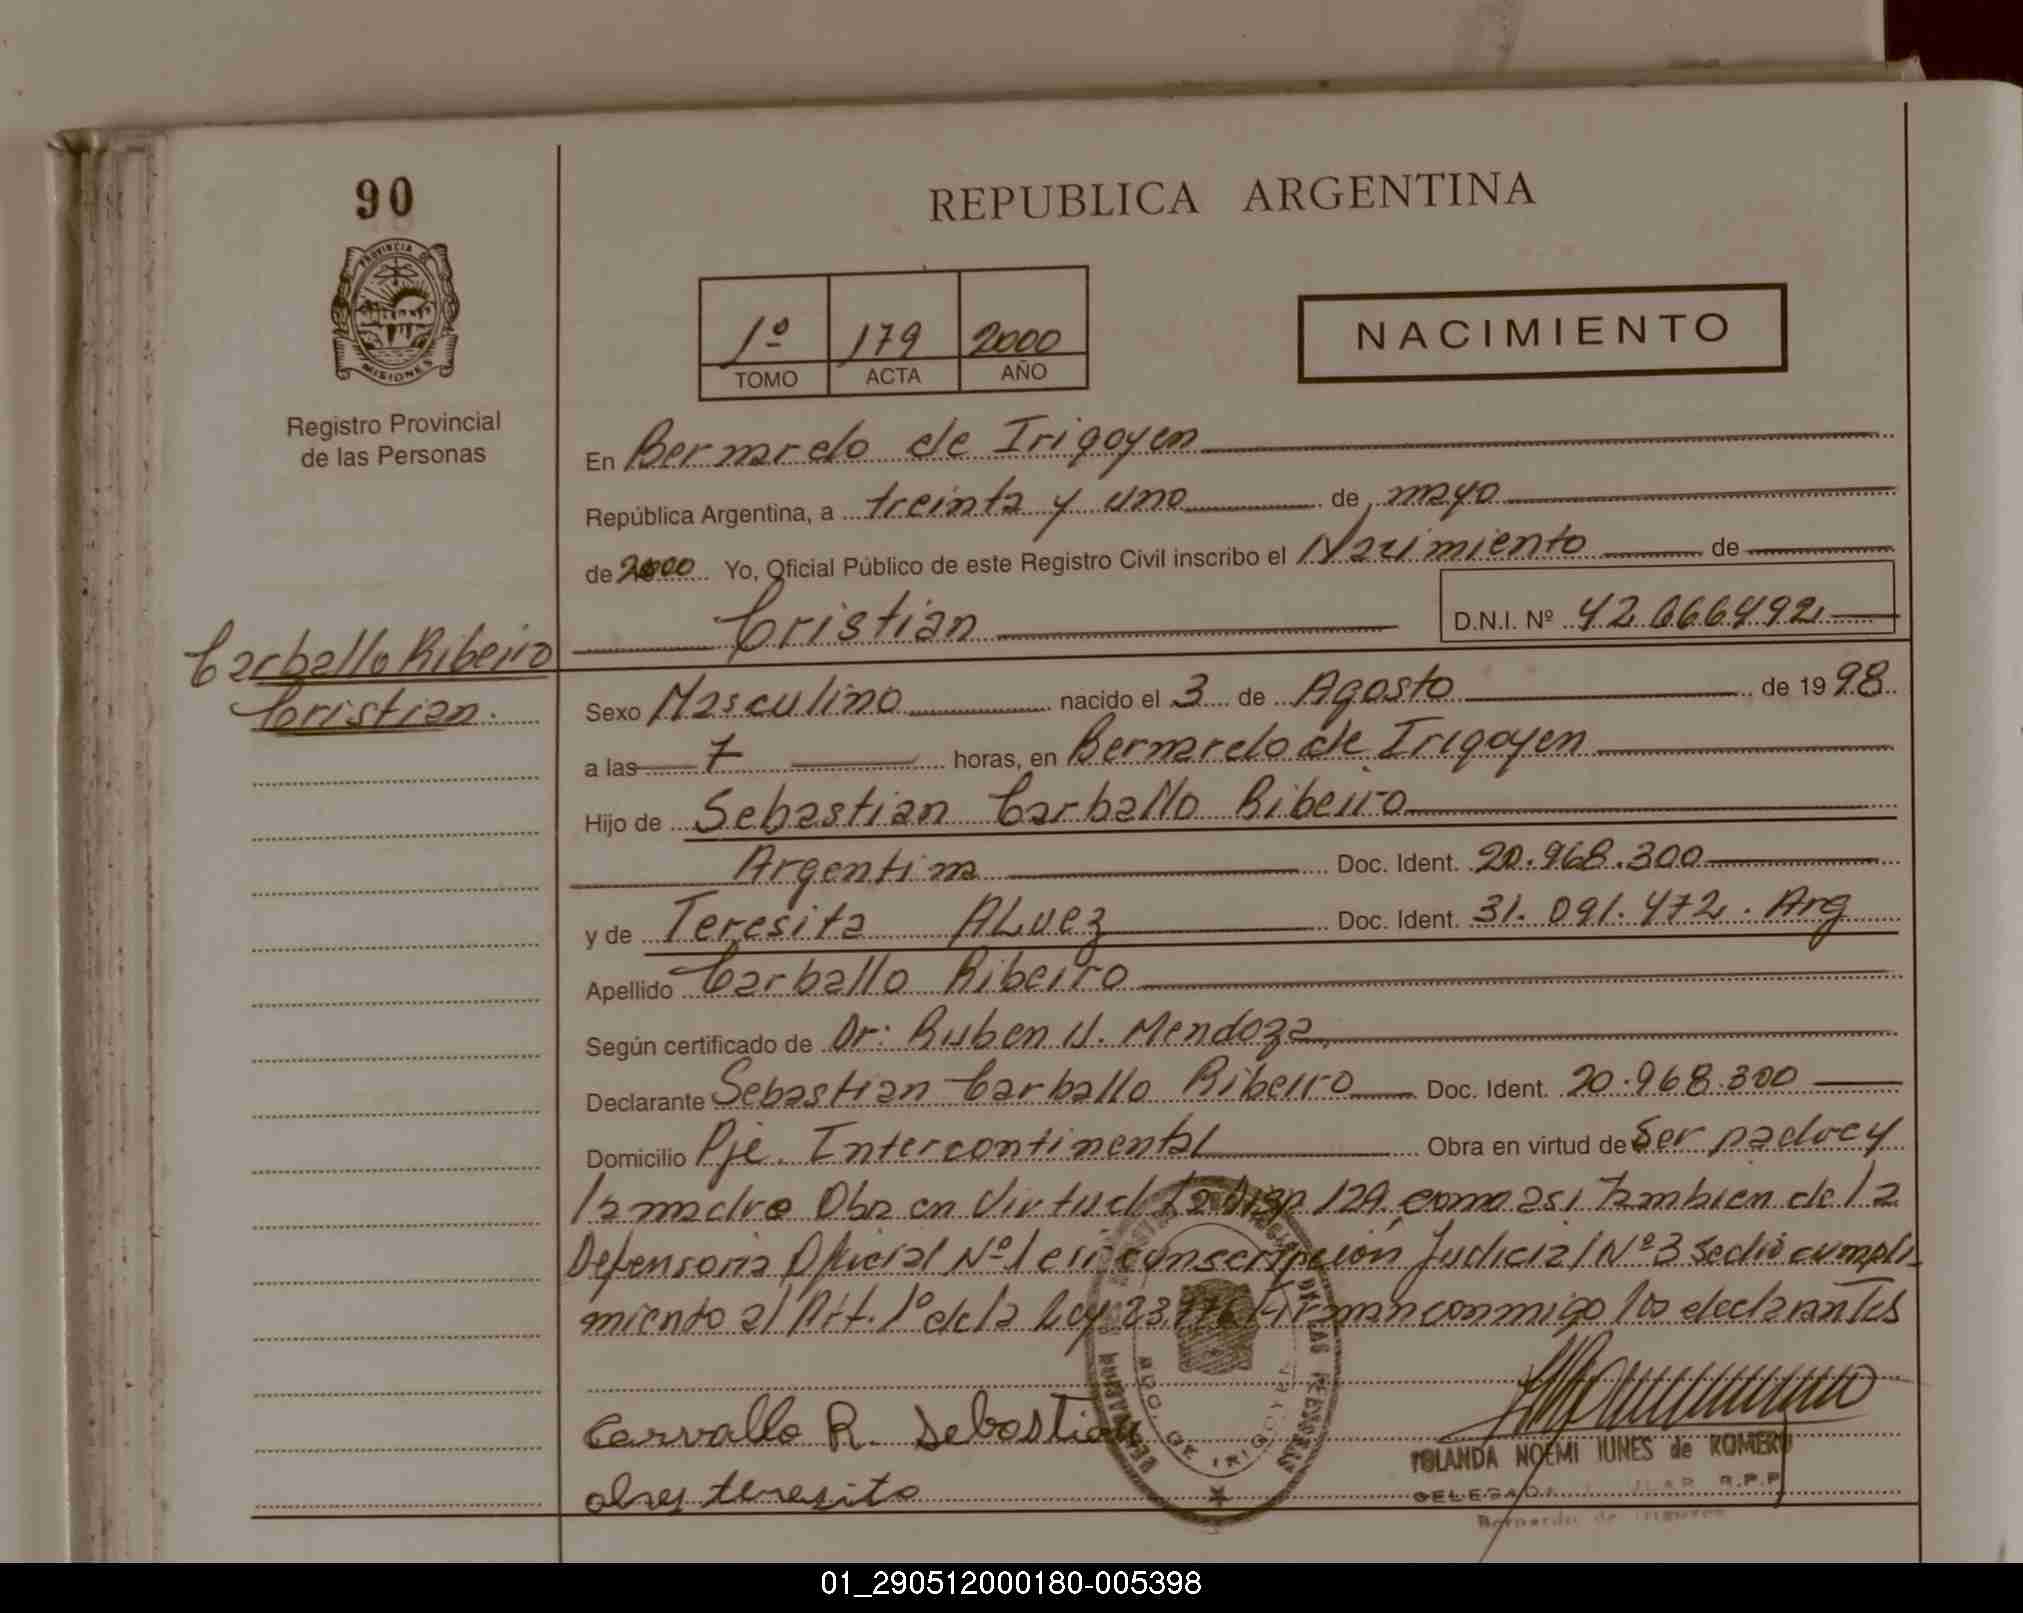 90
PROVINCIA DE
MISIONES
Registro Provincial
de las Personas
Carballo Ribeiro
Cristian.
REPUBLICA ARGENTINA
1º 179 2000
TOMO ACTA AÑO
NACIMIENTO
En Bernardo de Irigoyen
República Argentina, a treinta y uno de mayo
de 2000 Yo, Oficial Público de este Registro Civil inscribo el Nacimiento de
Cristian D.N.I. Nº 42.066492
Sexo Masculino nacido el 3 de Agosto de 1998
a las 7 horas, en Bernardo de Irigoyen
Hijo de Sebastian Carballo Ribeiro
Argentina Doc. Ident. 20.968.300
y de Teresita ALvez Doc. Ident. 31.091.472. Arg
Apellido Carballo Ribeiro
Según certificado de Dr: Ruben U. Mendoza
Declarante Sebastian Carballo Ribeiro Doc. Ident. 20.968.300
Domicilio Pje. Intercontinental Obra en virtud de Ser padre y
la madre Obra en Virtud 129, como asi tambien de la
Defensoria Oficial Nº 1 Judicial Nº 3 Se dió cumpli-
miento al Art. 1º de la Ley Firman conmigo los declarantes
Carvallo R. Sebastian
alves teresita
BDO. DE IRIGOYEN
DE LAS PERSONAS
YOLANDA NOEMI IUNES de ROMERO
DELEGADA R.P.P
Bernardo de Irigoyen
01_290512000180-005398